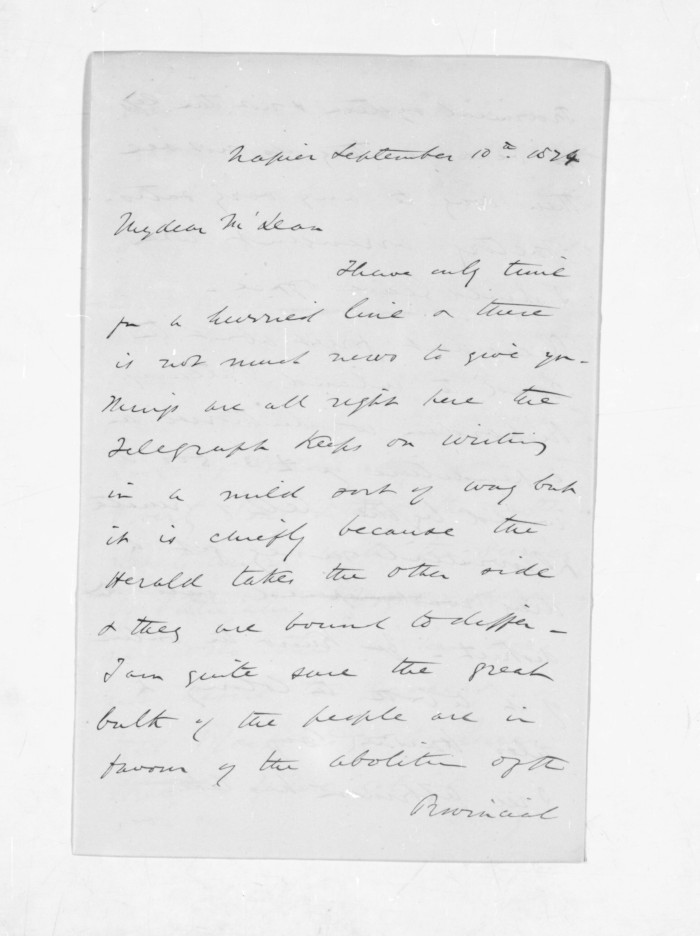 Napier September 10th. 1874
My dear McLean
I have only time
for a hurried line & there
is not much news to give you -
Things are all right here the
Telegraph keeps on writing
in a mild sort of way but
it is chiefly because the
Herald takes the other side
& they are bound to differ -
I am quite sure the great
bulk of the people are in
favour of the abolition of the
Provincial